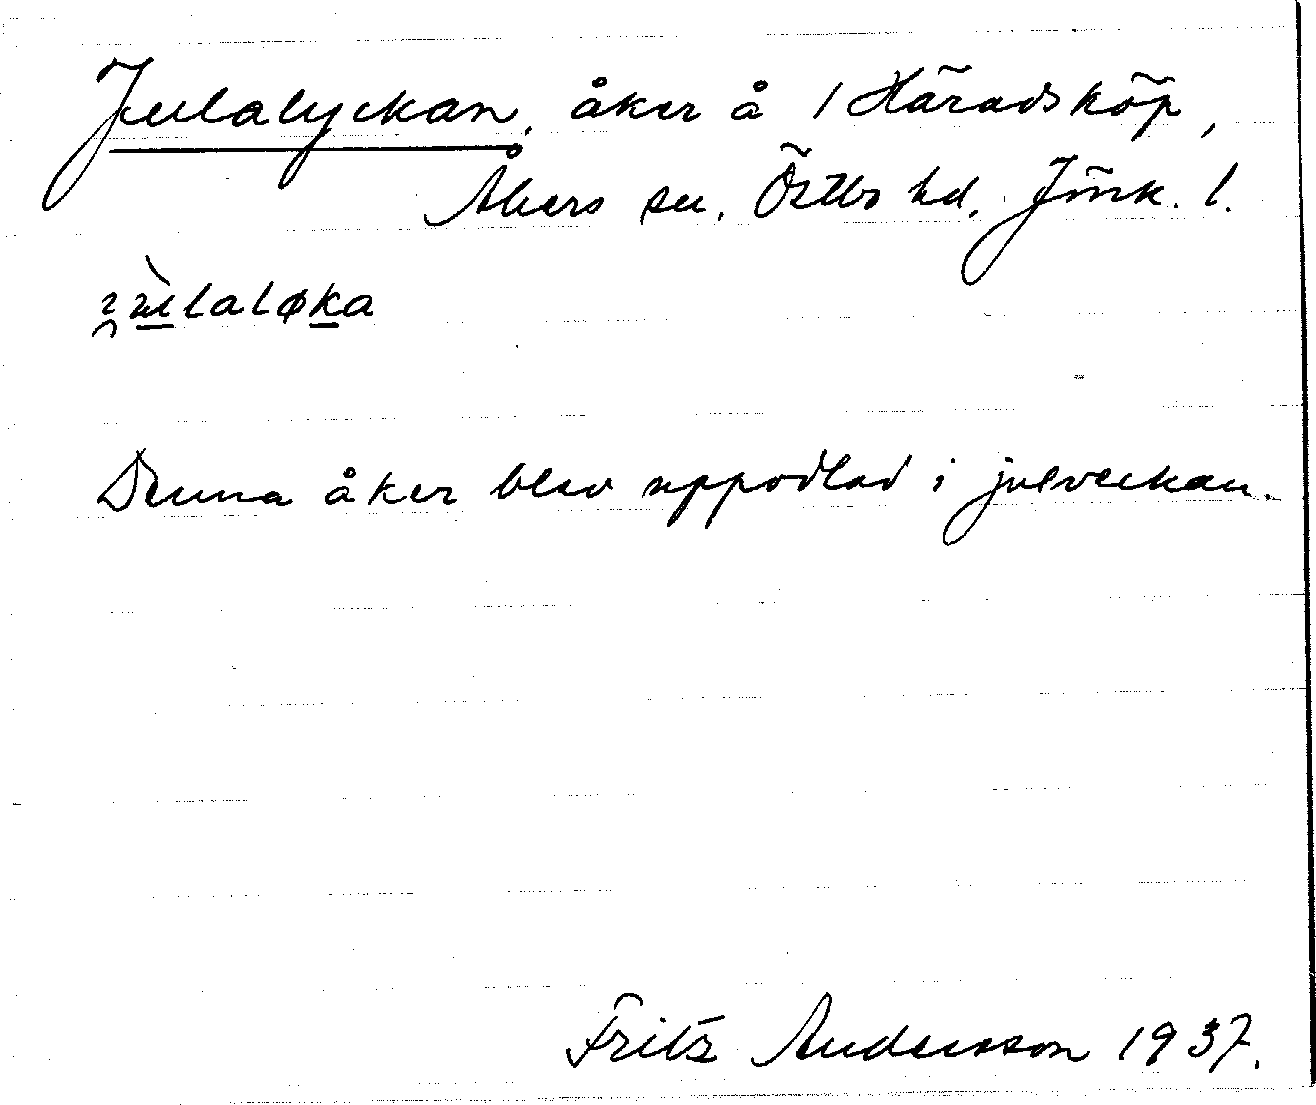 Julalyckan, åker å 1 Häradsköp,
Åkers sn, Östbo hd, Jönk. l.
jùlaløka
Denna åker blev uppodlad i julveckan.
Fritz Andersson 1937.